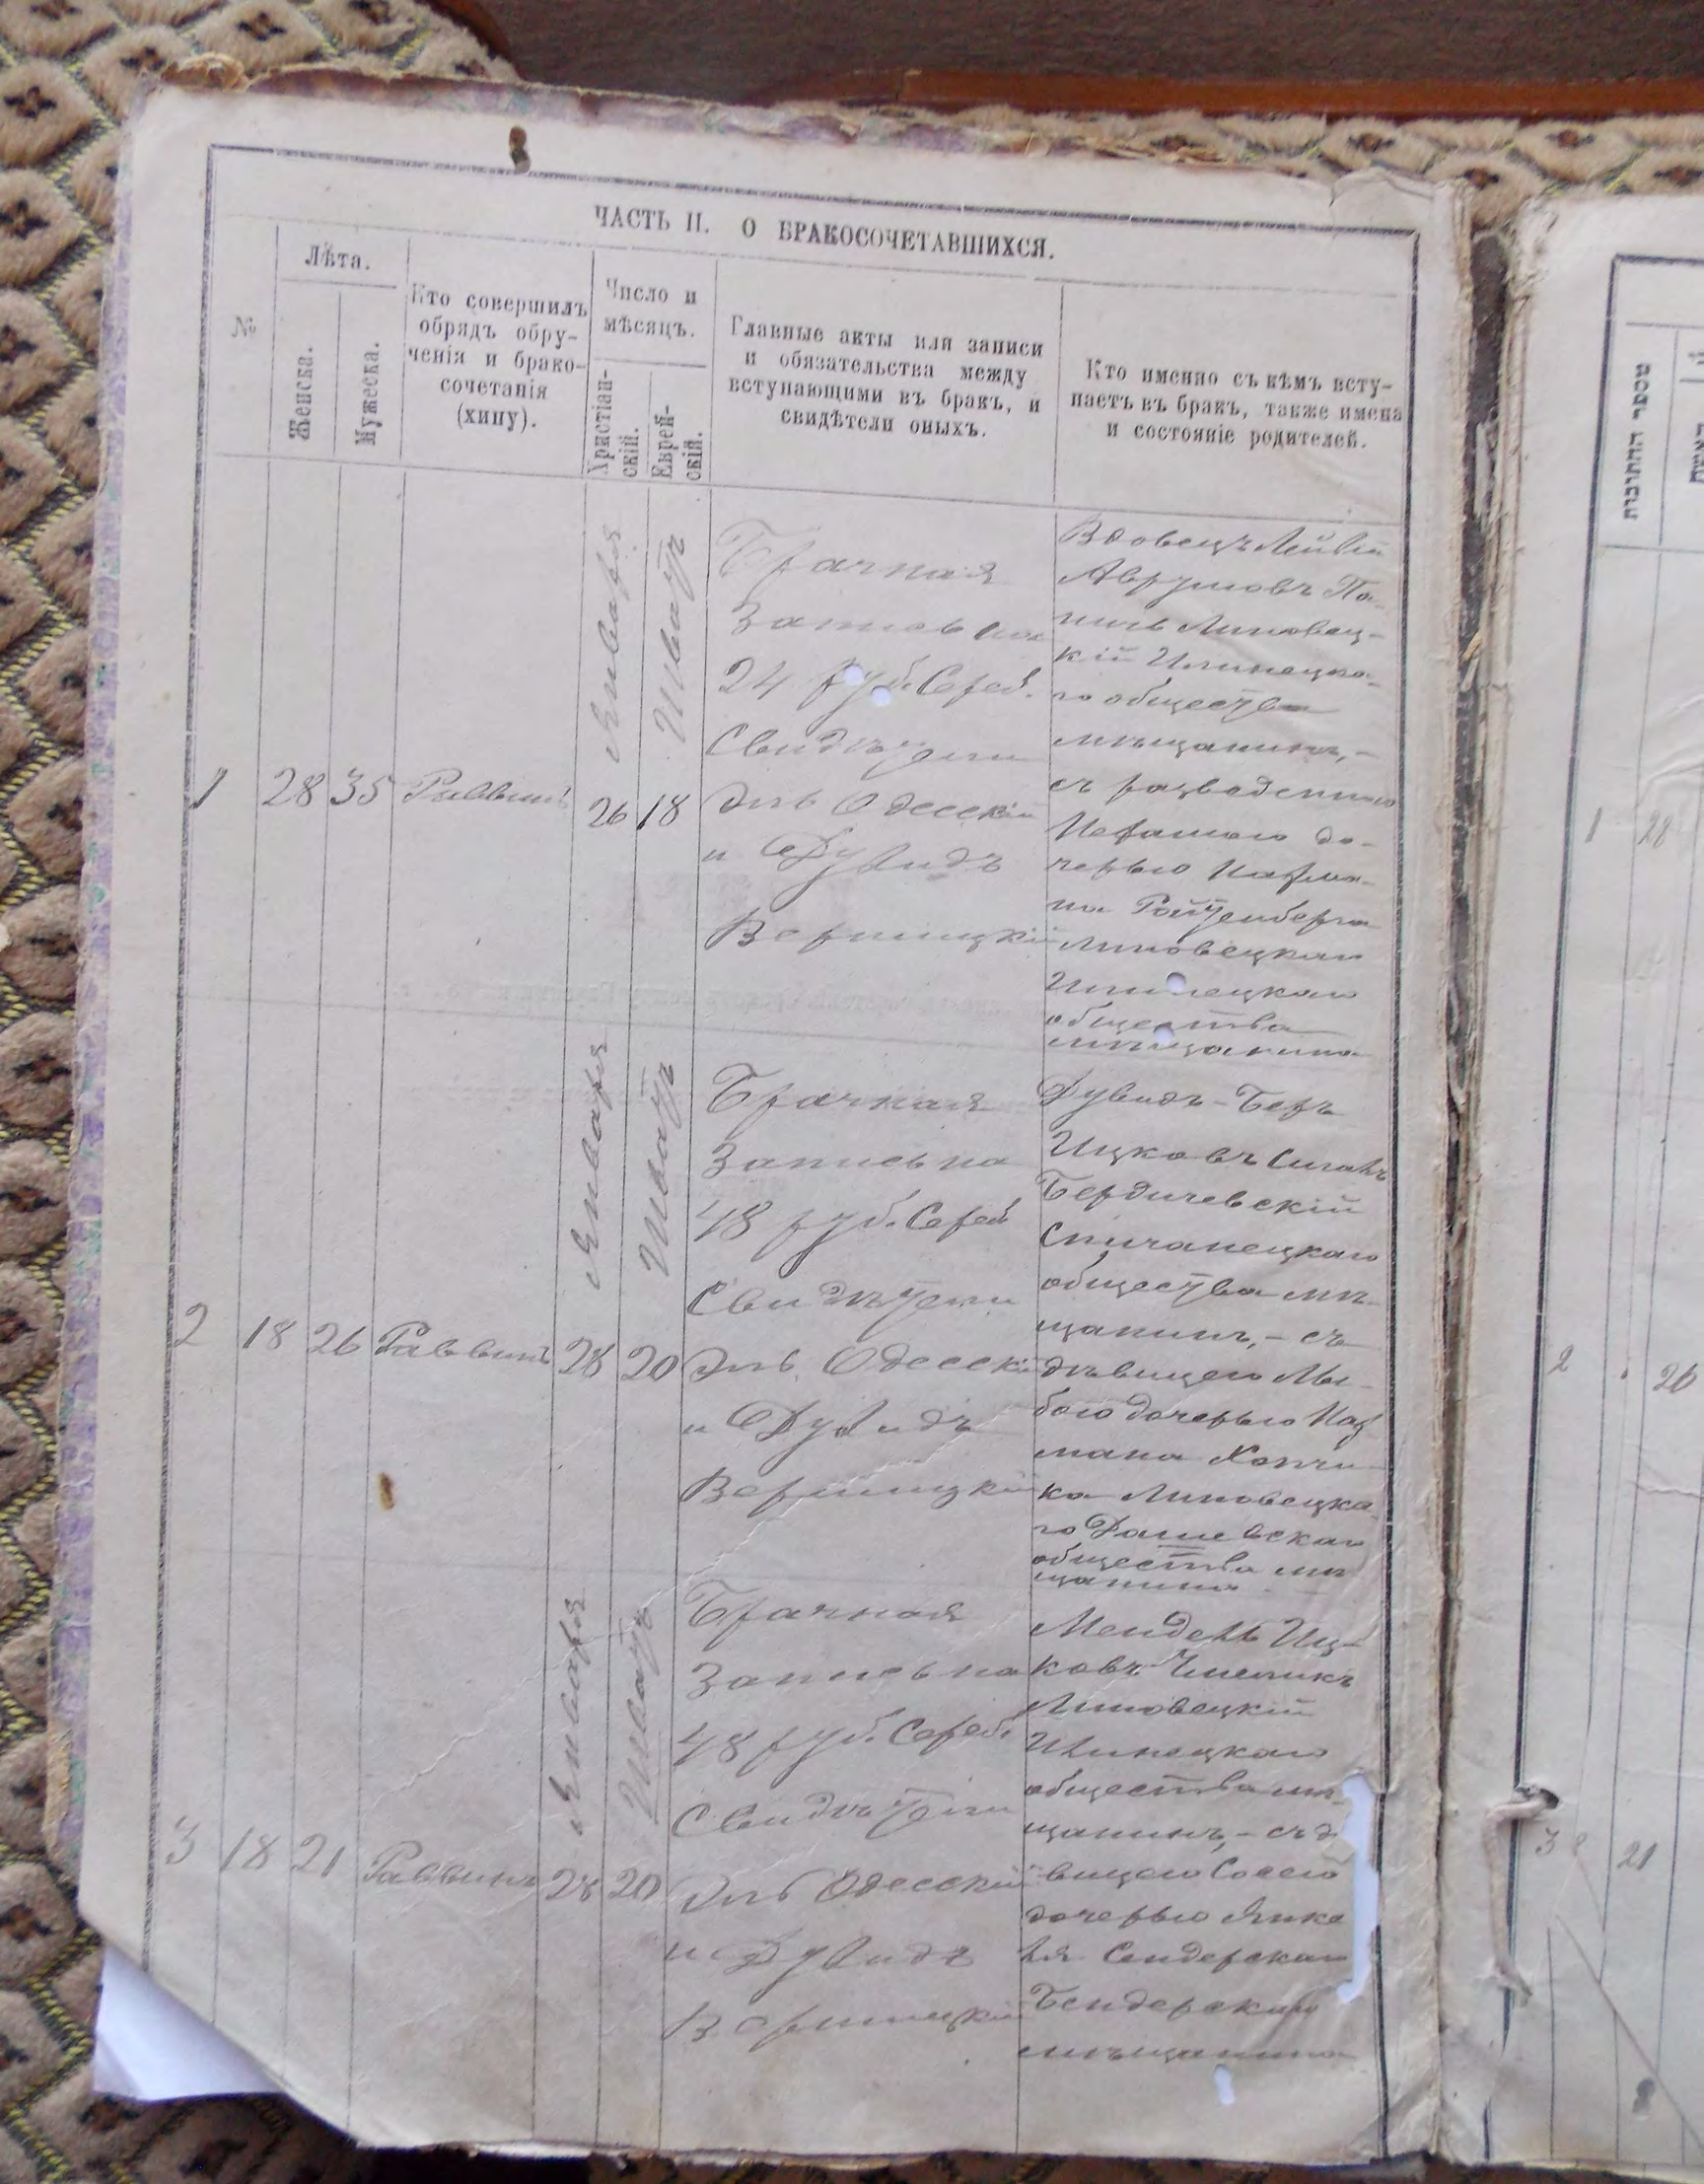 ЧАСТЬ II. О БРАКОСОЧЕТАВШИХСЯ.
№
Лѣта.
Женска.
Мужеска.
Кто совершилъ
обрядъ обру-
ченія и брако-
сочетанія
(хипу).
Число и
мѣсяцъ.
Христіан-
скій.
Еврей-
скій.
Главные акты или записи
и обязательства между
вступающими въ бракъ, и
свидѣтели оныхъ.
Кто именно съ кѣмъ всту-
паетъ въ бракъ, также имена
и состояніе родителей.
1
28
35
Раввинъ
Января
26
Шватъ
18
Брачная
Запись на
24 руб. Сереб.
Свидѣтели
Эль Одесскій
и Дувидъ
Верницкій
Вдовецъ Лейви
Аврумовъ
Липовец-
кій Илинецка-
го общества
мѣщанинъ,-
съ разведенною
до-
черью Нахма-
на Ройтенберга
Липовецкаго
Илинецкаго
общества
мѣщанина
2
18
26
Раввинъ
Января
28
Шватъ
20
Брачная
Запись на
48 руб. Сереб
Свидѣтели
Эль Одесскій
и Дувидъ
Верницкій
Дувидъ-Беръ
Ицковъ
Бердичевскій
Спичинецкаго
общества мѣ-
щанинъ,- съ
дѣвицею
дочерью Нах
мана
Липовецка-
го Дашевскаго
общества мѣ
щанина
3
18
21
Раввинъ
Января
28
Шватъ
20
Брачная
Запись на
48 руб. Сереб.
Свидѣтели
Эль Одесскій
и Дувидъ
Верницкій
Мендель Иц-
ковъ
Липовецкій
Илинецкаго
общества мѣ-
щанинъ,- съ д
вицею Сосею
дочерью Янке
ля Сендерскаго
Бендерскаго
мѣщанина
1
28
2
26
3
21